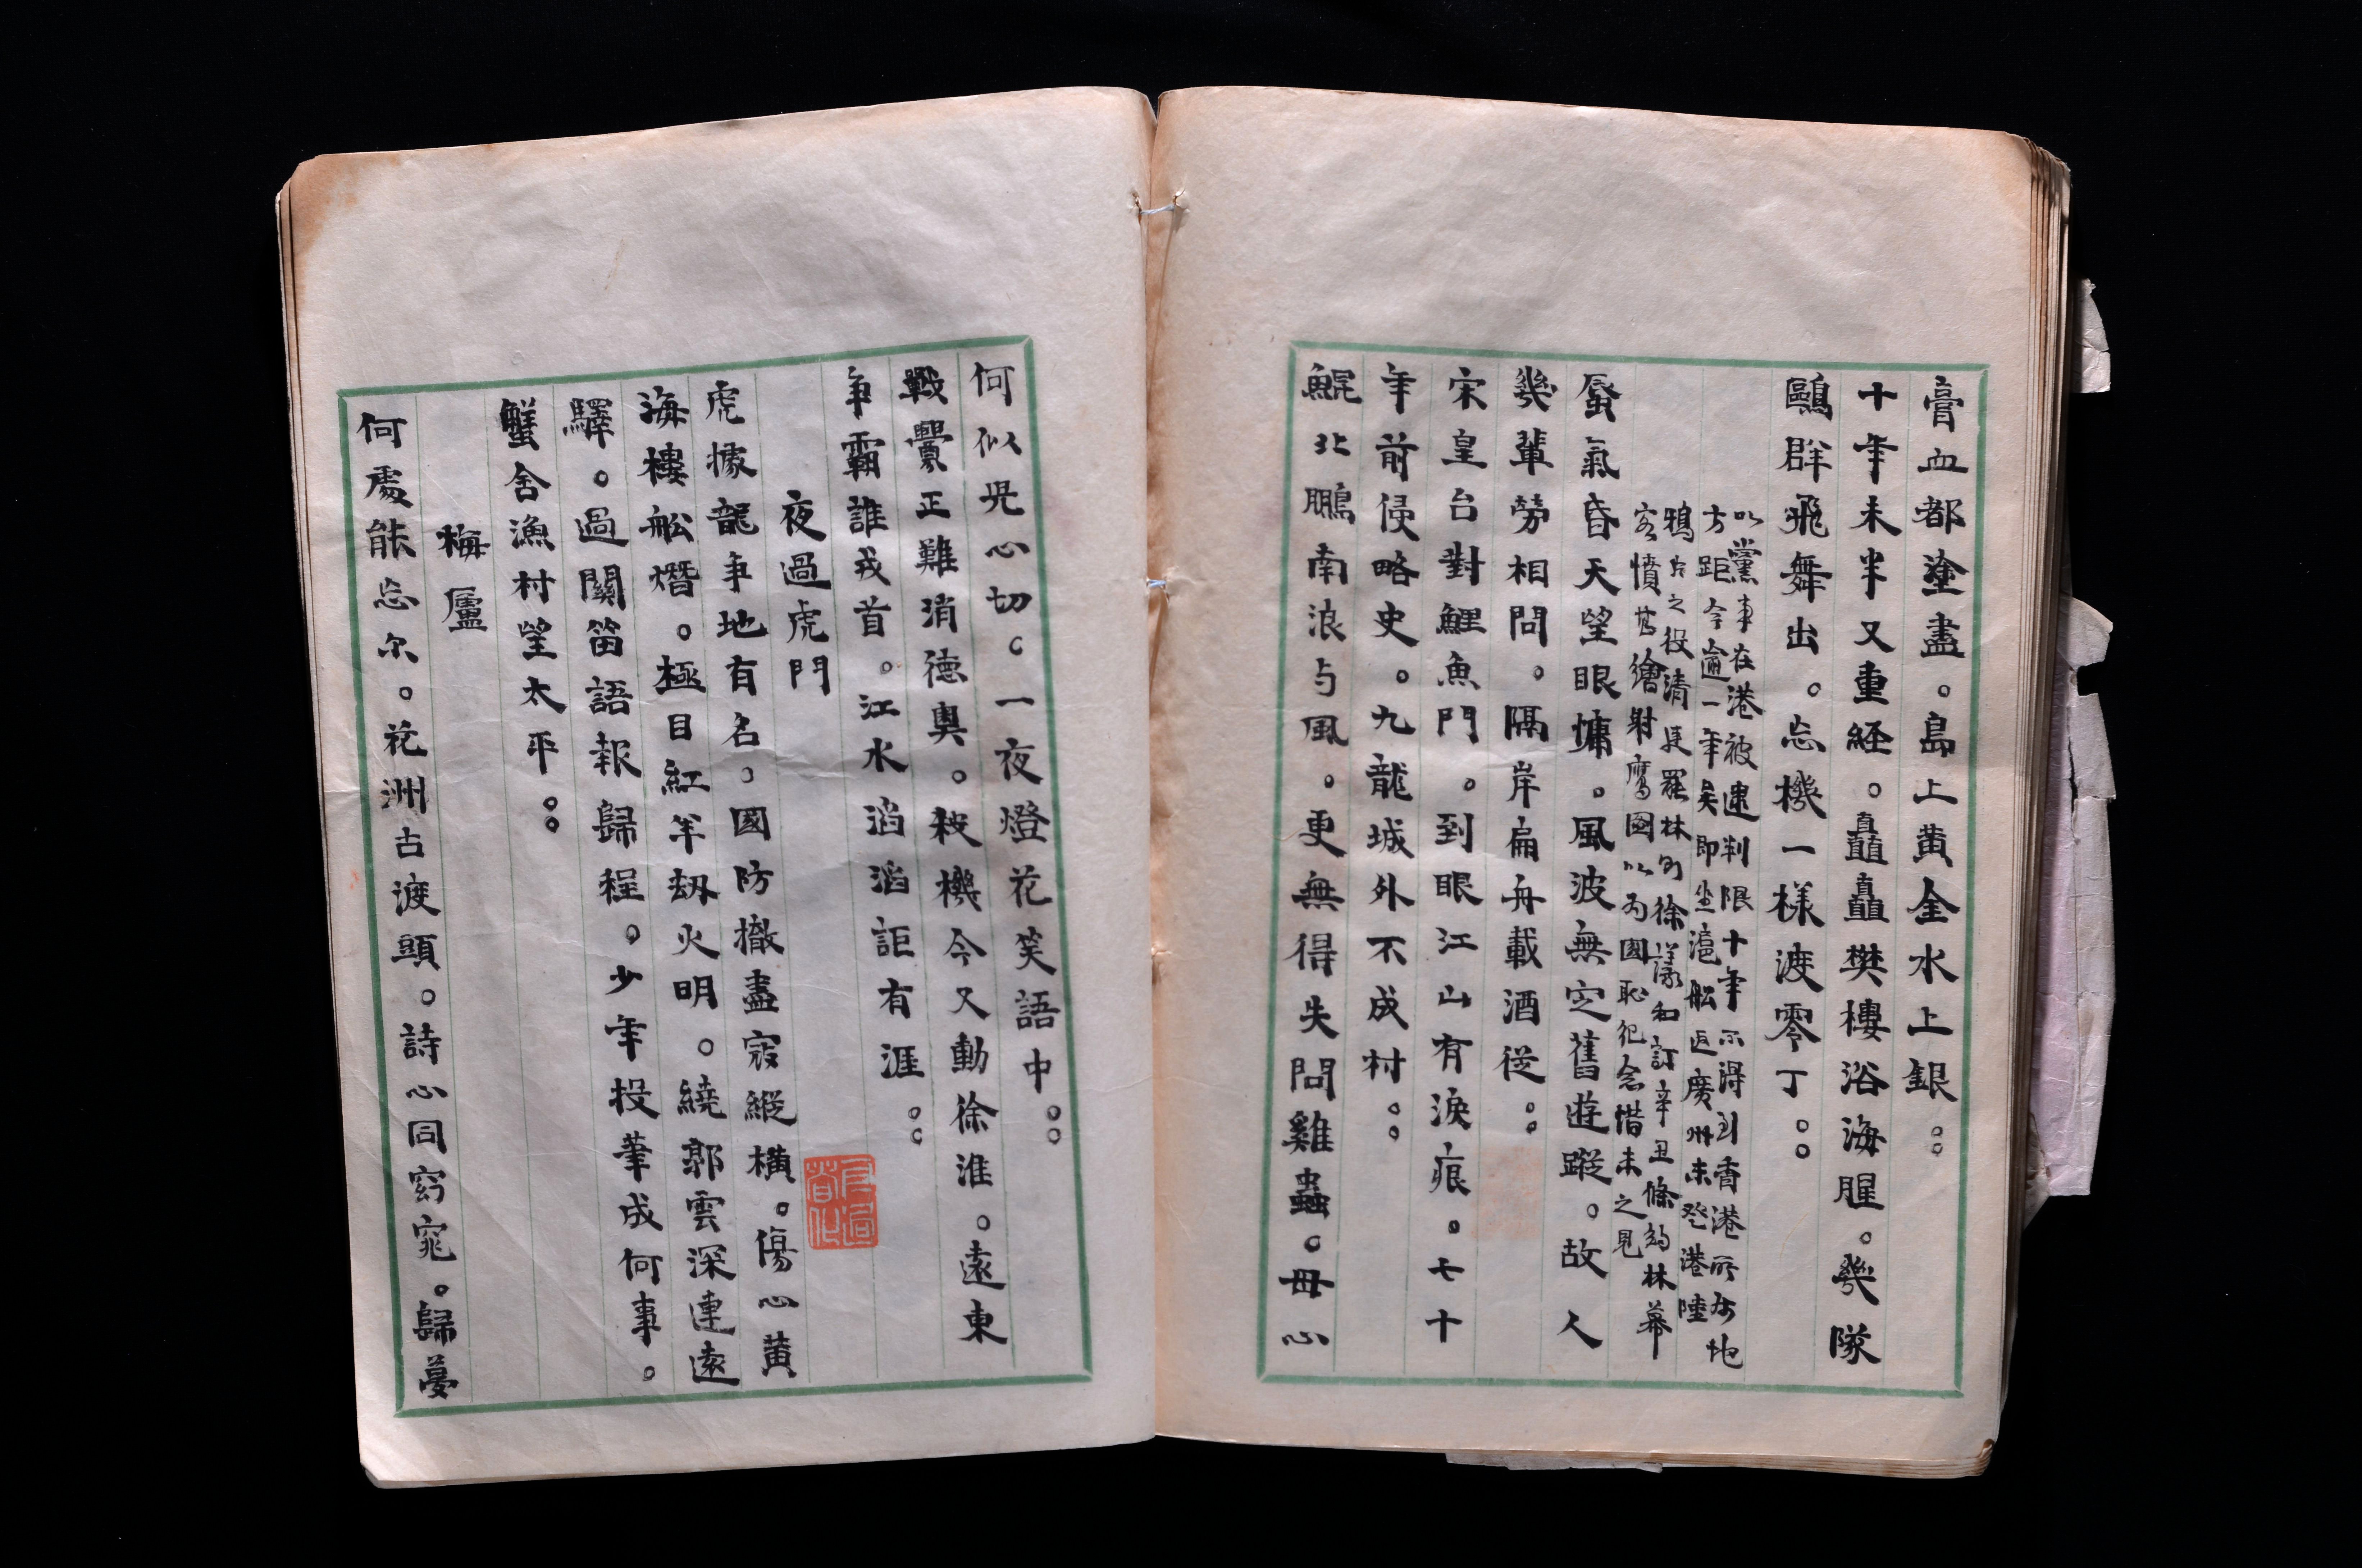 膏血都塗盡。島上黄金水上銀。
十年未半又重経。矗矗樊樓浴海腥。幾隊
鷗群飛舞出。忘機一樣渡零丁。
以黨事在港被逮判限十年不得到香港所屬地
方距今逾一年矣即坐滬船返廣州未登港陸
鴉片之役清廷罷林則徐議和訂辛丑條約林幕
客憤甚繪射鷹國以為國恥犯念惜未之見
蜃氣昏天望眼慵。風波無定舊遊蹤。故人
幾輩勞相問。隔岸扁舟載酒從。
宋皇台對鯉魚門。到眼江山有淚痕。七十
年前侵略史。九龍城外不成村。
鯤北鵬南浪与風。更無得失問雞蟲。毋心
何似兒心切。一夜燈花笑語中。
戰釁正難消德奥。殺機今又動徐淮。遠東
爭霸誰戎首。江水滔滔詎有涯。
夜過虎門
虎據龍爭地有名。國防撤盡寇縱横。傷心黄
海樓船熸。極目紅羊劫火明。繞郭雲深連遠
驛。過關笛語報歸程。少年投筆成何事。
蟹舍漁村望太平。
梅廬
何處能忘尔。花洲古渡頭。詩心同窈窕。歸夢